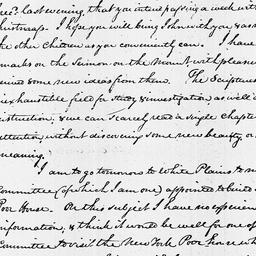 last evening that you intend passing a week with
Christmas. I hope you will bring John with you & as
the other children as you conveniently can. I have
marks on the Sermon on the Mount with pleasure
some new ideas from them. The Scriptures
inexhaustible field for study & investigation, as well as
instruction, & we can scarcely read a single chapter
attention, without discovering some new beauty or
meaning.
I am to go tomorrow to White Plains to m
Committee (of which I am one) appointed to build a
Poor House. On this subject I have no experience
information, & think it would be well for one of
Committee to visit the New York Poor House wh